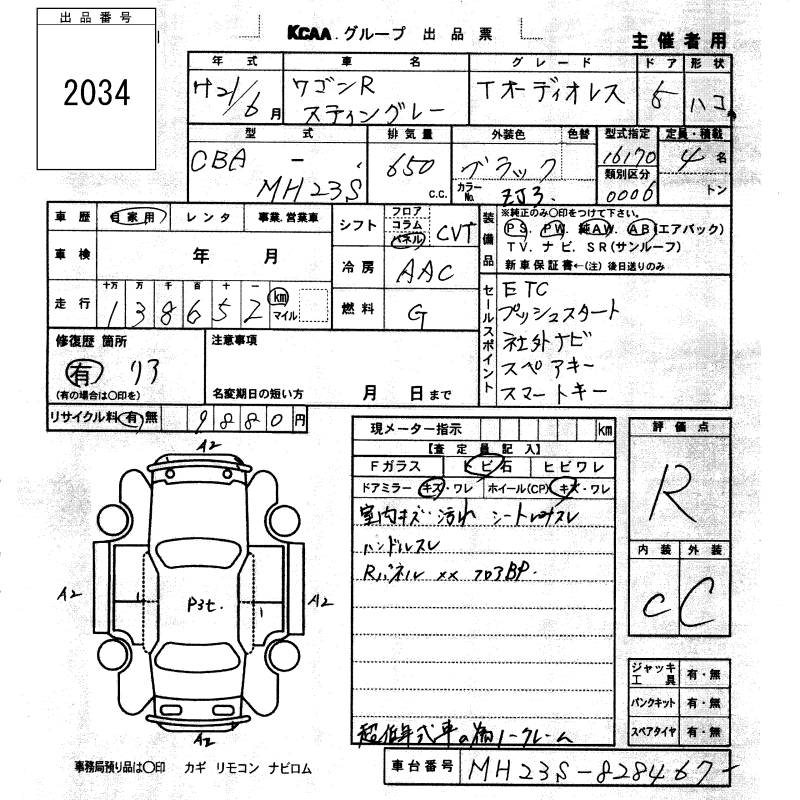 出品番号
2034
KCAA グループ 出品票
主催者用
年式 車名 グレード ドア 形状
H21/6月 ワゴンR スティングレー Tオーディオレス 5 ハコ
型式 排気量 外装色 色替 型式指定 定員・積載
CBA - MH23S 650 c.c. ブラック 16170 4名
カラーNo. ZJ3 類別区分 0006 トン
車歴 自家用 レンタ 事業.営業車
車検 年 月
十万 万 千 百 十 一
走行 138652 km マイル
シフト フロア コラム パネル CVT
冷房 AAC
燃料 G
装備品
※純正のみ○印をつけて下さい。
PS. PW. 純AW. AB(エアバック)
TV. ナビ. SR(サンルーフ)
新車保証書←(注)後日送りのみ
セールスポイント
ETC
プッシュスタート
社外ナビ
スペアキー
スマートキー
修復歴 箇所
有 リア
(有の場合は○印を)
注意事項
名変期日の短い方 月 日まで
リサイクル料 有 無 9880円
現メーター指示 km
【査定員記入】
Fガラス トビ石 ヒビワレ
ドアミラー キズ・ワレ ホイール(CP) キズ・ワレ
室内キズ・汚れ シート
ハンドルスレ
Rパネル xx フロアBP.
超低年式車の為ノークレーム
評価点
R
内装 外装
C C
ジャッキ 工具 有・無
パンクキット 有・無
スペアタイヤ 有・無
A2
A2
P3t.
1
1
A2
A2
事務局預り品は○印 カギ リモコン ナビロム
車台番号 MH23S-828467